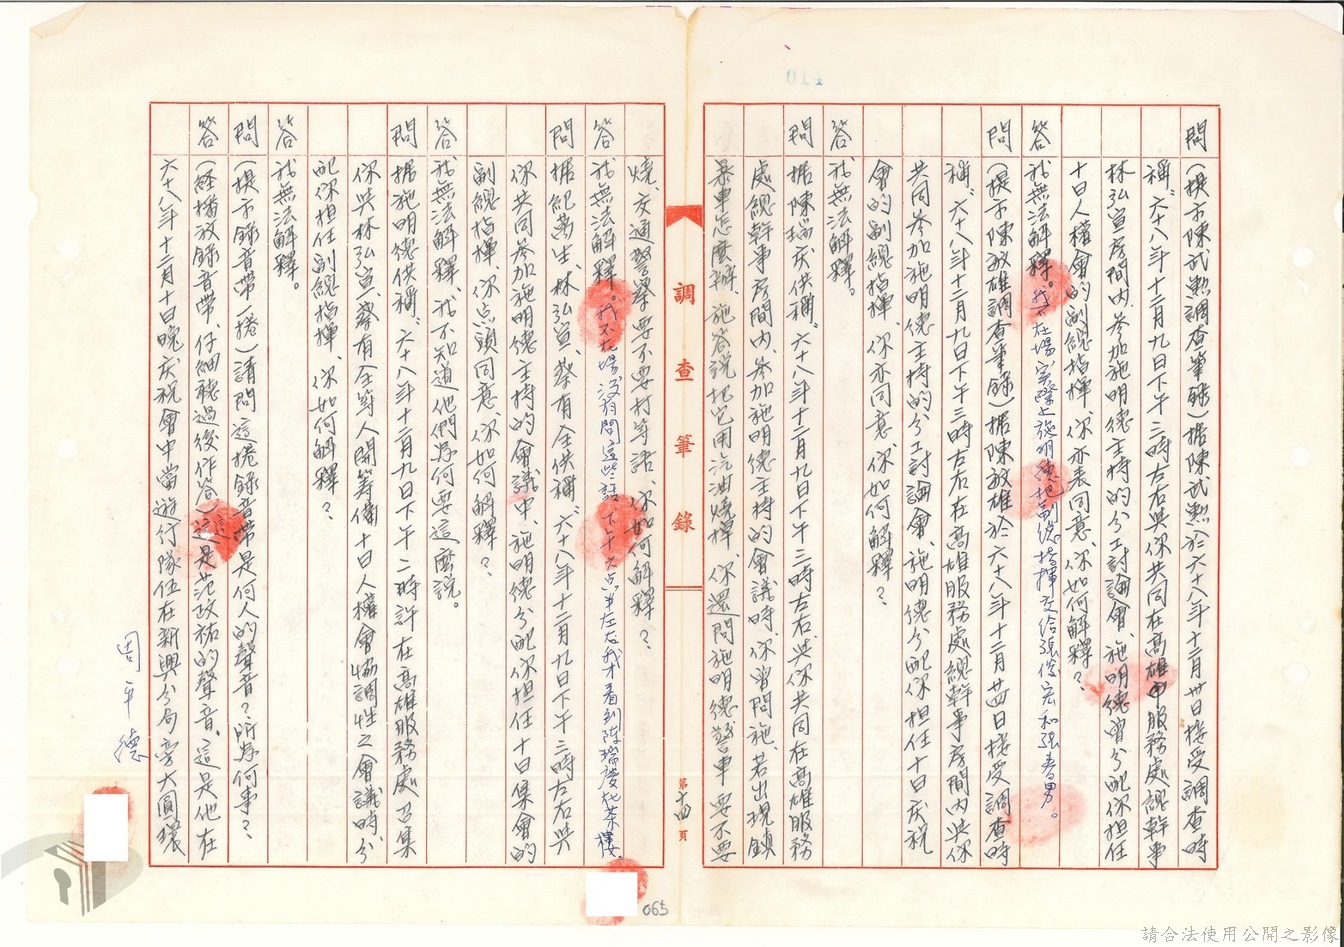 014
問(提示陳武勲調查筆錄)據陳武勲於六十八年十二月卅日接受調查時
稱、六十八年十二月九日下午三時左右與你共同在高雄服務處總幹事
林弘宣房間內參加施明德主持的分工討論會、施明德曾分配你担任
十日人權會的副總指揮、你亦表同意、你如何解釋?
答 我無法解釋。我不在場實際上施明德把副總指揮交給張俊宏和張春男。
問(提示陳敏雄調查筆錄)據陳敏雄於六十八年十二月廿四日接受調查時
稱、六十八年十二月九日下午三時左右在高雄服務處總幹事房間內與你
共同參加施明德主持的分工討論會、施明德分配你担任十日庆祝
會的副總指揮、你亦同意、你如何解釋?
答 我無法解釋。
問 據陳瑞庆供稱、六十八年十二月九日下午三時左右與你共同在高雄服務
處總幹事房間內、參加施明德主持的會議時、你曾問施、若出現鎮
暴車怎麼辦、施答說把它用汽油燒掉、你還問施明德警車要不要
調查筆錄
第十四頁
燒、交通警察要不要打等話、你如何解釋?
答 我無法解釋。我不在場沒有問這些話下午六点半左右我才看到陳瑞慶在茶樓。
問 據紀萬生、林弘宣、蔡有全供稱、六十八年十二月九日下午三時左右與
你共同參加施明德主持的會議中、施明德分配你担任十日集會的
副總指揮、你点頭同意、你如何解釋?
答 我無法解釋、我不知道他們為何要這麼說。
問 據施明德供稱、六十八年十二月九日下午二時許在高雄服務處召集
你與林弘宣、蔡有全等人開籌備十日人權會協調性之會議時、分
配你担任副總指揮、你如何解釋?
答 我無法解釋。
問(提示錄音帶一捲)請問這捲錄音帶是何人的聲音?所為何事?
答(経播放錄音帶、仔細聽過後作答)這是范政祐的聲音、這是他在
六十八年十二月十日晚庆祝會中當遊行隊伍在新興分局旁大圓環
周平德
065
請合法使用公開之影像